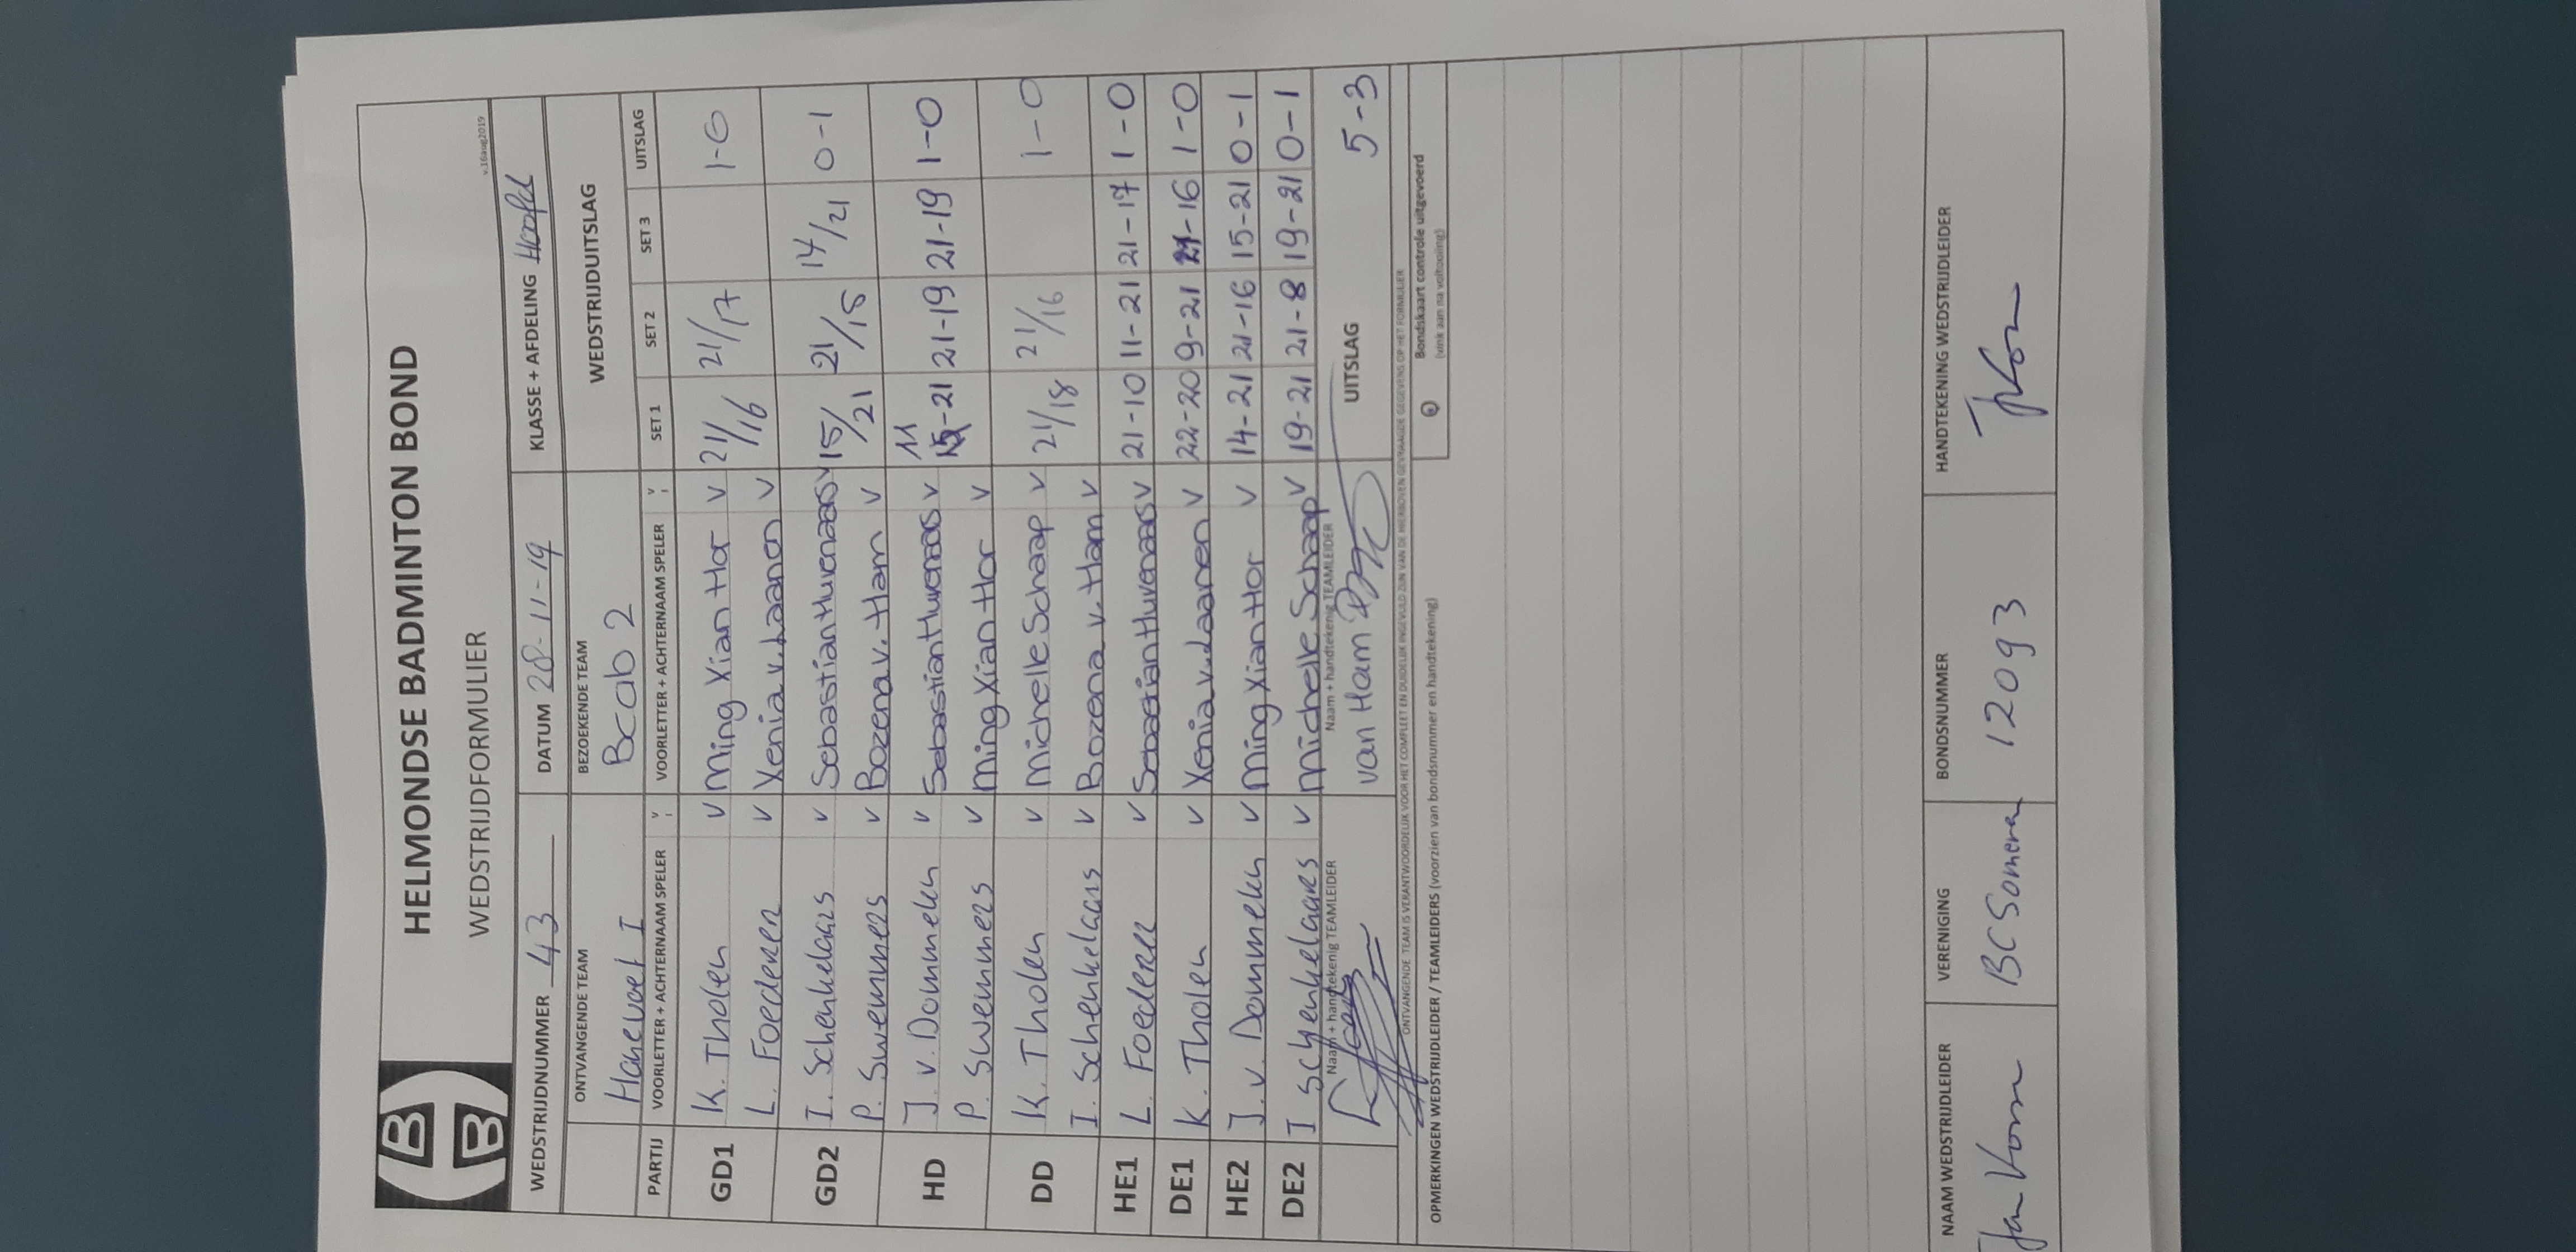 HELMONDSE BADMINTON BOND
WEDSTRIJDFORMULIER
v.16aug2019
WEDSTRIJDNUMMER 43 DATUM 28-11-19 KLASSE + AFDELING Hoofd
ONTVANGENDE TEAM BEZOEKENDE TEAM WEDSTRIJDUITSLAG
Hanevoet I Bcab 2
PARTIJ VOORLETTER + ACHTERNAAM SPELER V VOORLETTER + ACHTERNAAM SPELER V SET 1 SET 2 SET 3 UITSLAG
GD1 K. Tholen v Ming Xian Hor v 21/16 21/17 1-0
L. Foederer v Xenia v. Laanen v
GD2 I. Schenkelaars v Sebastian Huvenaars v 15/21 21/15 14/21 0-1
P. Swemmers v Bozena v. Ham v
HD J. v. Dommelen v Sebastian Huvenaars v 11-21 21-19 21-19 1-0
P. Swemmers v Ming Xian Hor v
DD K. Tholen v Michelle Schaap v 21/18 21/16 1-0
I. Schenkelaars v Bozena v. Ham v
HE1 L. Foederer v Sebastian Huvenaars v 21-10 11-21 21-17 1-0
DE1 K. Tholen v Xenia v. Laanen v 22-20 9-21 21-16 1-0
HE2 J. v. Dommelen v Ming Xian Hor v 14-21 21-16 15-21 0-1
DE2 I Schenkelaars v Michelle Schaap v 19-21 21-8 19-21 0-1
Naam + handtekenig TEAMLEIDER Naam + handtekenig TEAMLEIDER
van Ham UITSLAG 5-3
ONTVANGENDE TEAM IS VERANTWOORDELIJK VOOR HET COMPLEET EN DUIDELIJK INGEVULD ZIJN VAN DE HIERBOVEN GEVRAAGDE GEGEVENS OP HET FORMULIER
Bondskaart controle uitgevoerd
(vink aan na voltooiing)
OPMERKINGEN WEDSTRIJDLEIDER / TEAMLEIDERS (voorzien van bondsnummer en handtekening)
NAAM WEDSTRIJDLEIDER VERENIGING BONDSNUMMER HANDTEKENING WEDSTRIJDLEIDER
BC Someren 12093